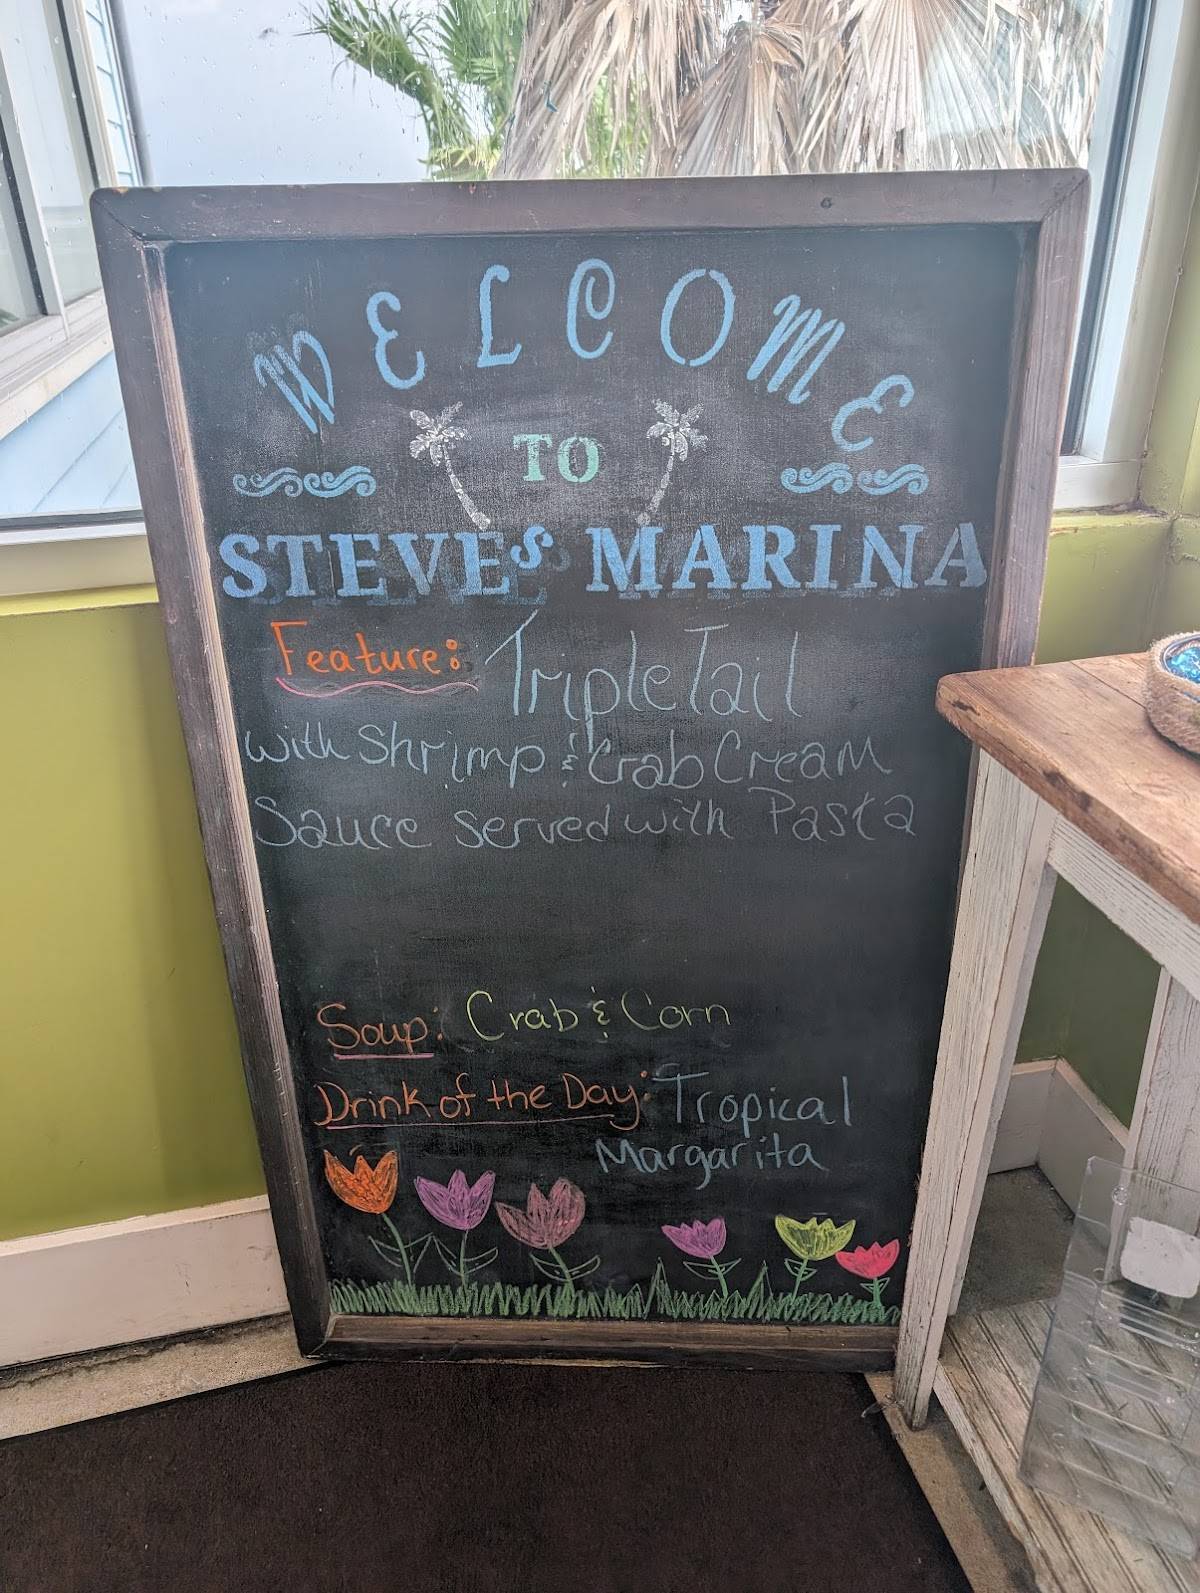 WELCOME
TO
STEVES MARINA
Feature: Triple Tail
with Shrimp & Crab Cream
Sauce served with Pasta
Soup: Crab & Corn
Drink of the Day: Tropical
Margarita